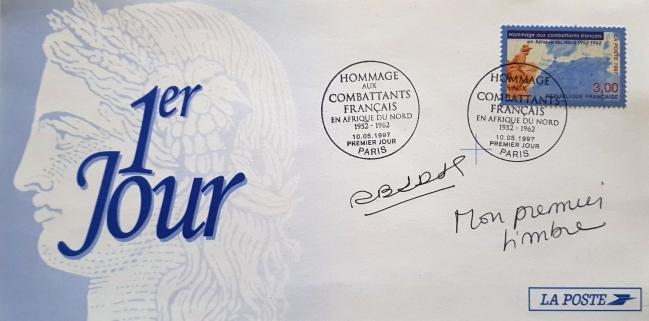 1er
Jour
HOMMAGE
AUX
COMBATTANTS
FRANÇAIS
EN AFRIQUE DU NORD
1952 - 1962
10.05.1997
PREMIER JOUR
PARIS
Hommage aux combattants français
en Afrique du Nord 1952-1962
LA POSTE 1997
3,00
RÉPUBLIQUE FRANÇAISE
HOMMAGE
AUX
COMBATTANTS
FRANÇAIS
EN AFRIQUE DU NORD
1952 - 1962
10.05.1997
PREMIER JOUR
PARIS
Mon premier
timbre
LA POSTE